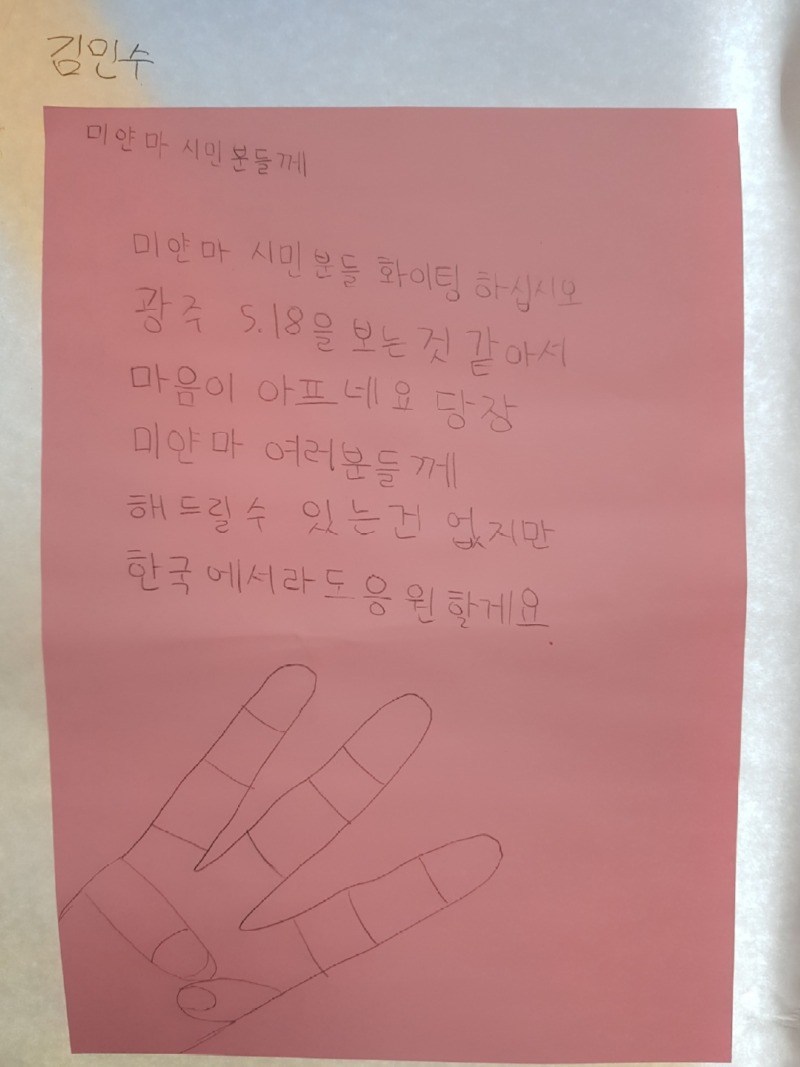 김민수
미얀마 시민분들께
미얀마 시민분들 화이팅 하십시오
광주 5.18을 보는것 같아서
마음이 아프네요 당장
미얀마 여러분들께
해드릴수 있는건 없지만
한국에서라도 응원할게요.